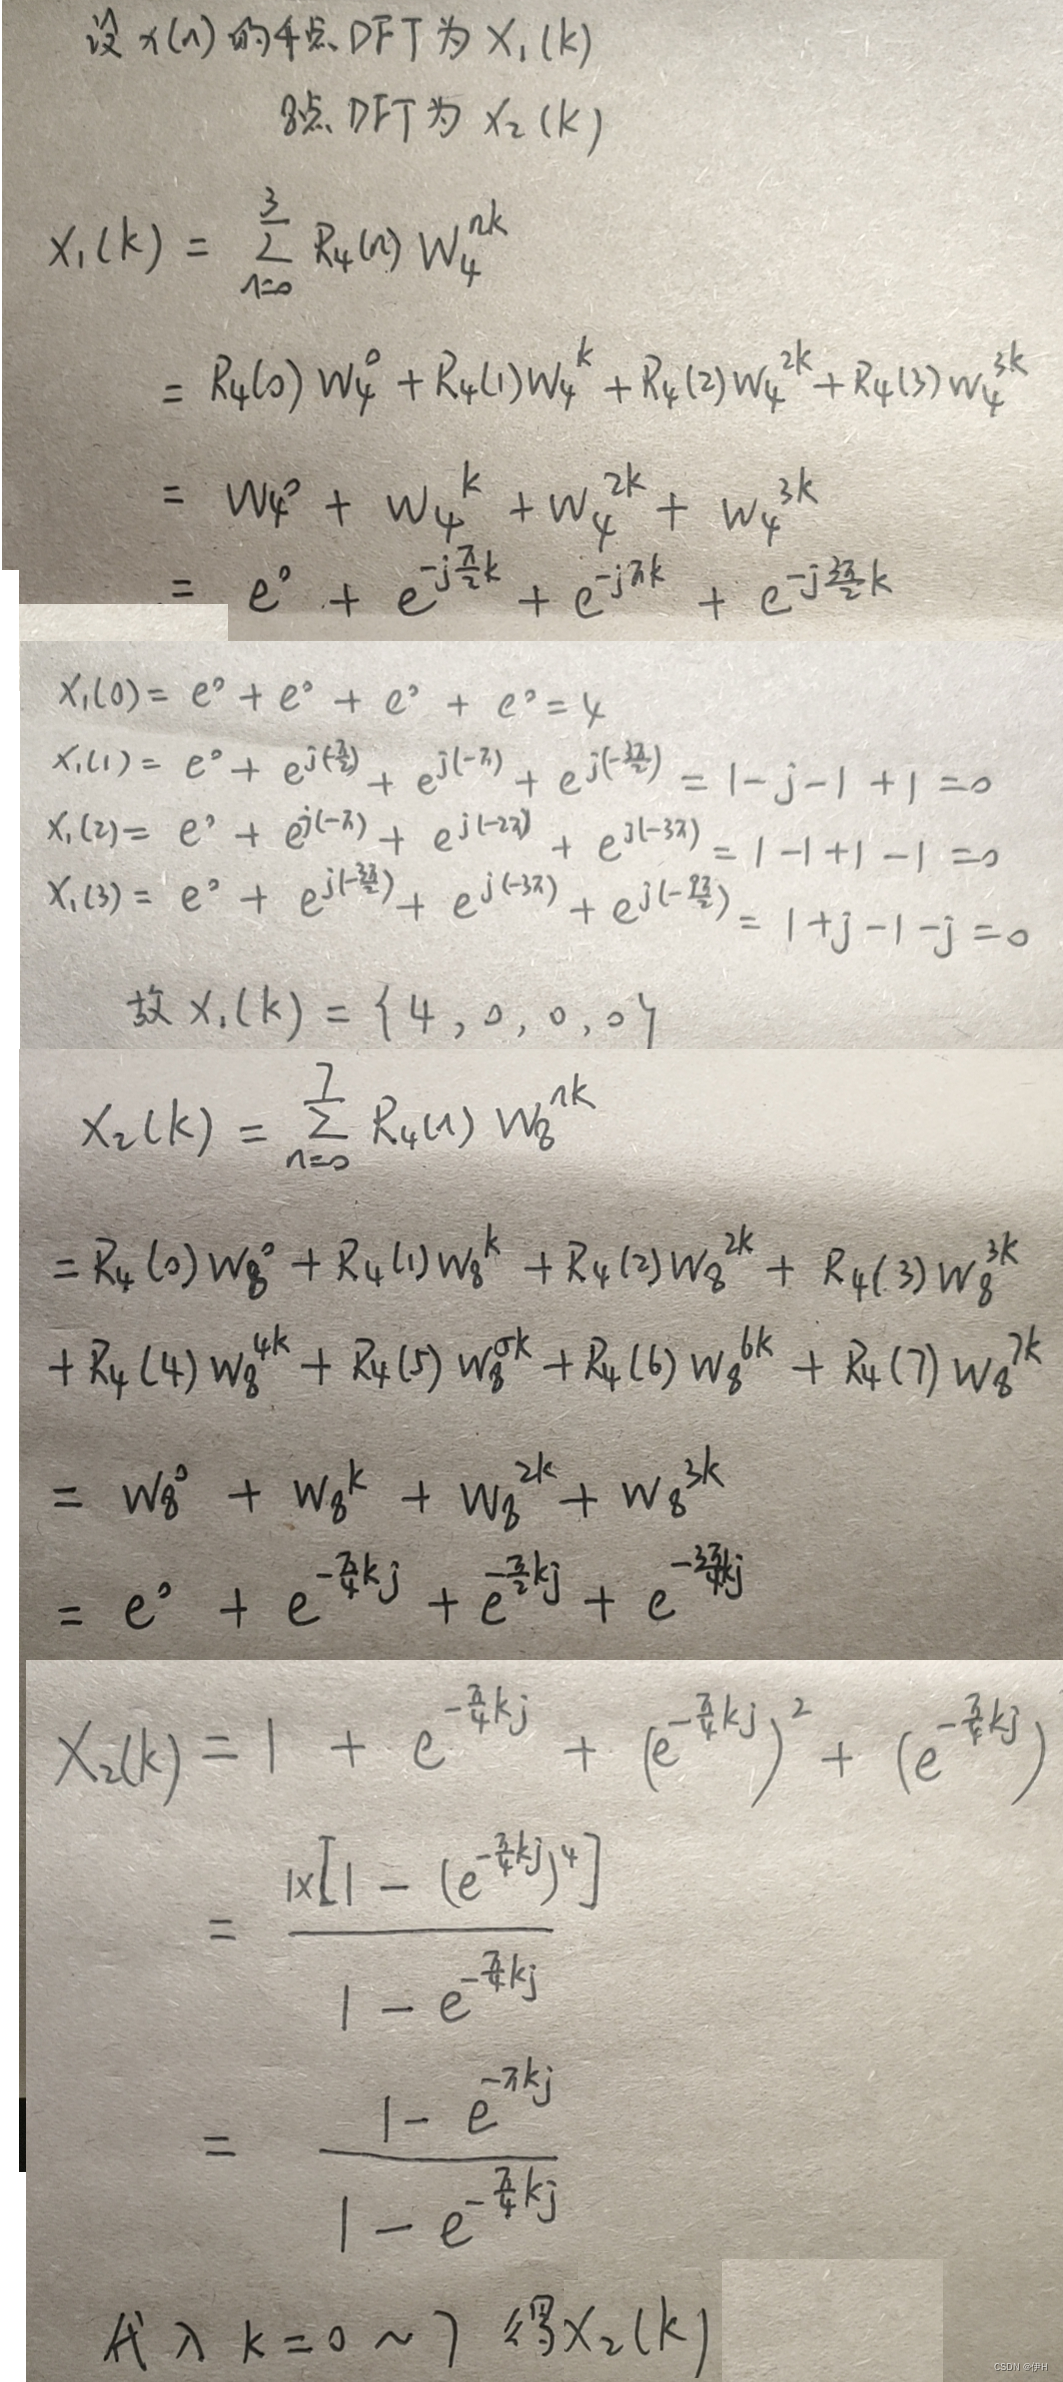 设 x(n) 的4点 DFT 为 X₁(k)
8点 DFT 为 X₂(k)
X₁(k) = Σ_{n=0}^{3} R₄(n) W₄^{nk}
= R₄(0) W₄^0 + R₄(1) W₄^k + R₄(2) W₄^{2k} + R₄(3) W₄^{3k}
= W₄^0 + W₄^k + W₄^{2k} + W₄^{3k}
= e^0 + e^{-j\frac{π}{2}k} + e^{-jπk} + e^{-j\frac{3π}{2}k}
X₁(0) = e^0 + e^0 + e^0 + e^0 = 4
X₁(1) = e^0 + e^{j(-\frac{π}{2})} + e^{j(-π)} + e^{j(-\frac{3π}{2})} = 1 - j - 1 + 1 = 0
X₁(2) = e^0 + e^{j(-π)} + e^{j(-2π)} + e^{j(-3π)} = 1 - 1 + 1 - 1 = 0
X₁(3) = e^0 + e^{j(-\frac{3π}{2})} + e^{j(-3π)} + e^{j(-\frac{9π}{2})} = 1 + j - 1 - j = 0
故 X₁(k) = {4, 0, 0, 0}
X₂(k) = Σ_{n=0}^{7} R₄(n) W₈^{nk}
= R₄(0) W₈^0 + R₄(1) W₈^k + R₄(2) W₈^{2k} + R₄(3) W₈^{3k}
+ R₄(4) W₈^{4k} + R₄(5) W₈^{5k} + R₄(6) W₈^{6k} + R₄(7) W₈^{7k}
= W₈^0 + W₈^k + W₈^{2k} + W₈^{3k}
= e^0 + e^{-\frac{π}{4}kj} + e^{-\frac{π}{2}kj} + e^{-\frac{3π}{4}kj}
X₂(k) = 1 + e^{-\frac{π}{4}kj} + (e^{-\frac{π}{4}kj})^2 + (e^{-\frac{π}{4}kj})
= \frac{1×[1 - (e^{-\frac{π}{4}kj})^4]}{1 - e^{-\frac{π}{4}kj}}
= \frac{1 - e^{-πkj}}{1 - e^{-\frac{π}{4}kj}}
代入 k = 0 ~ 7 得 X₂(k)
CSDN @伊H